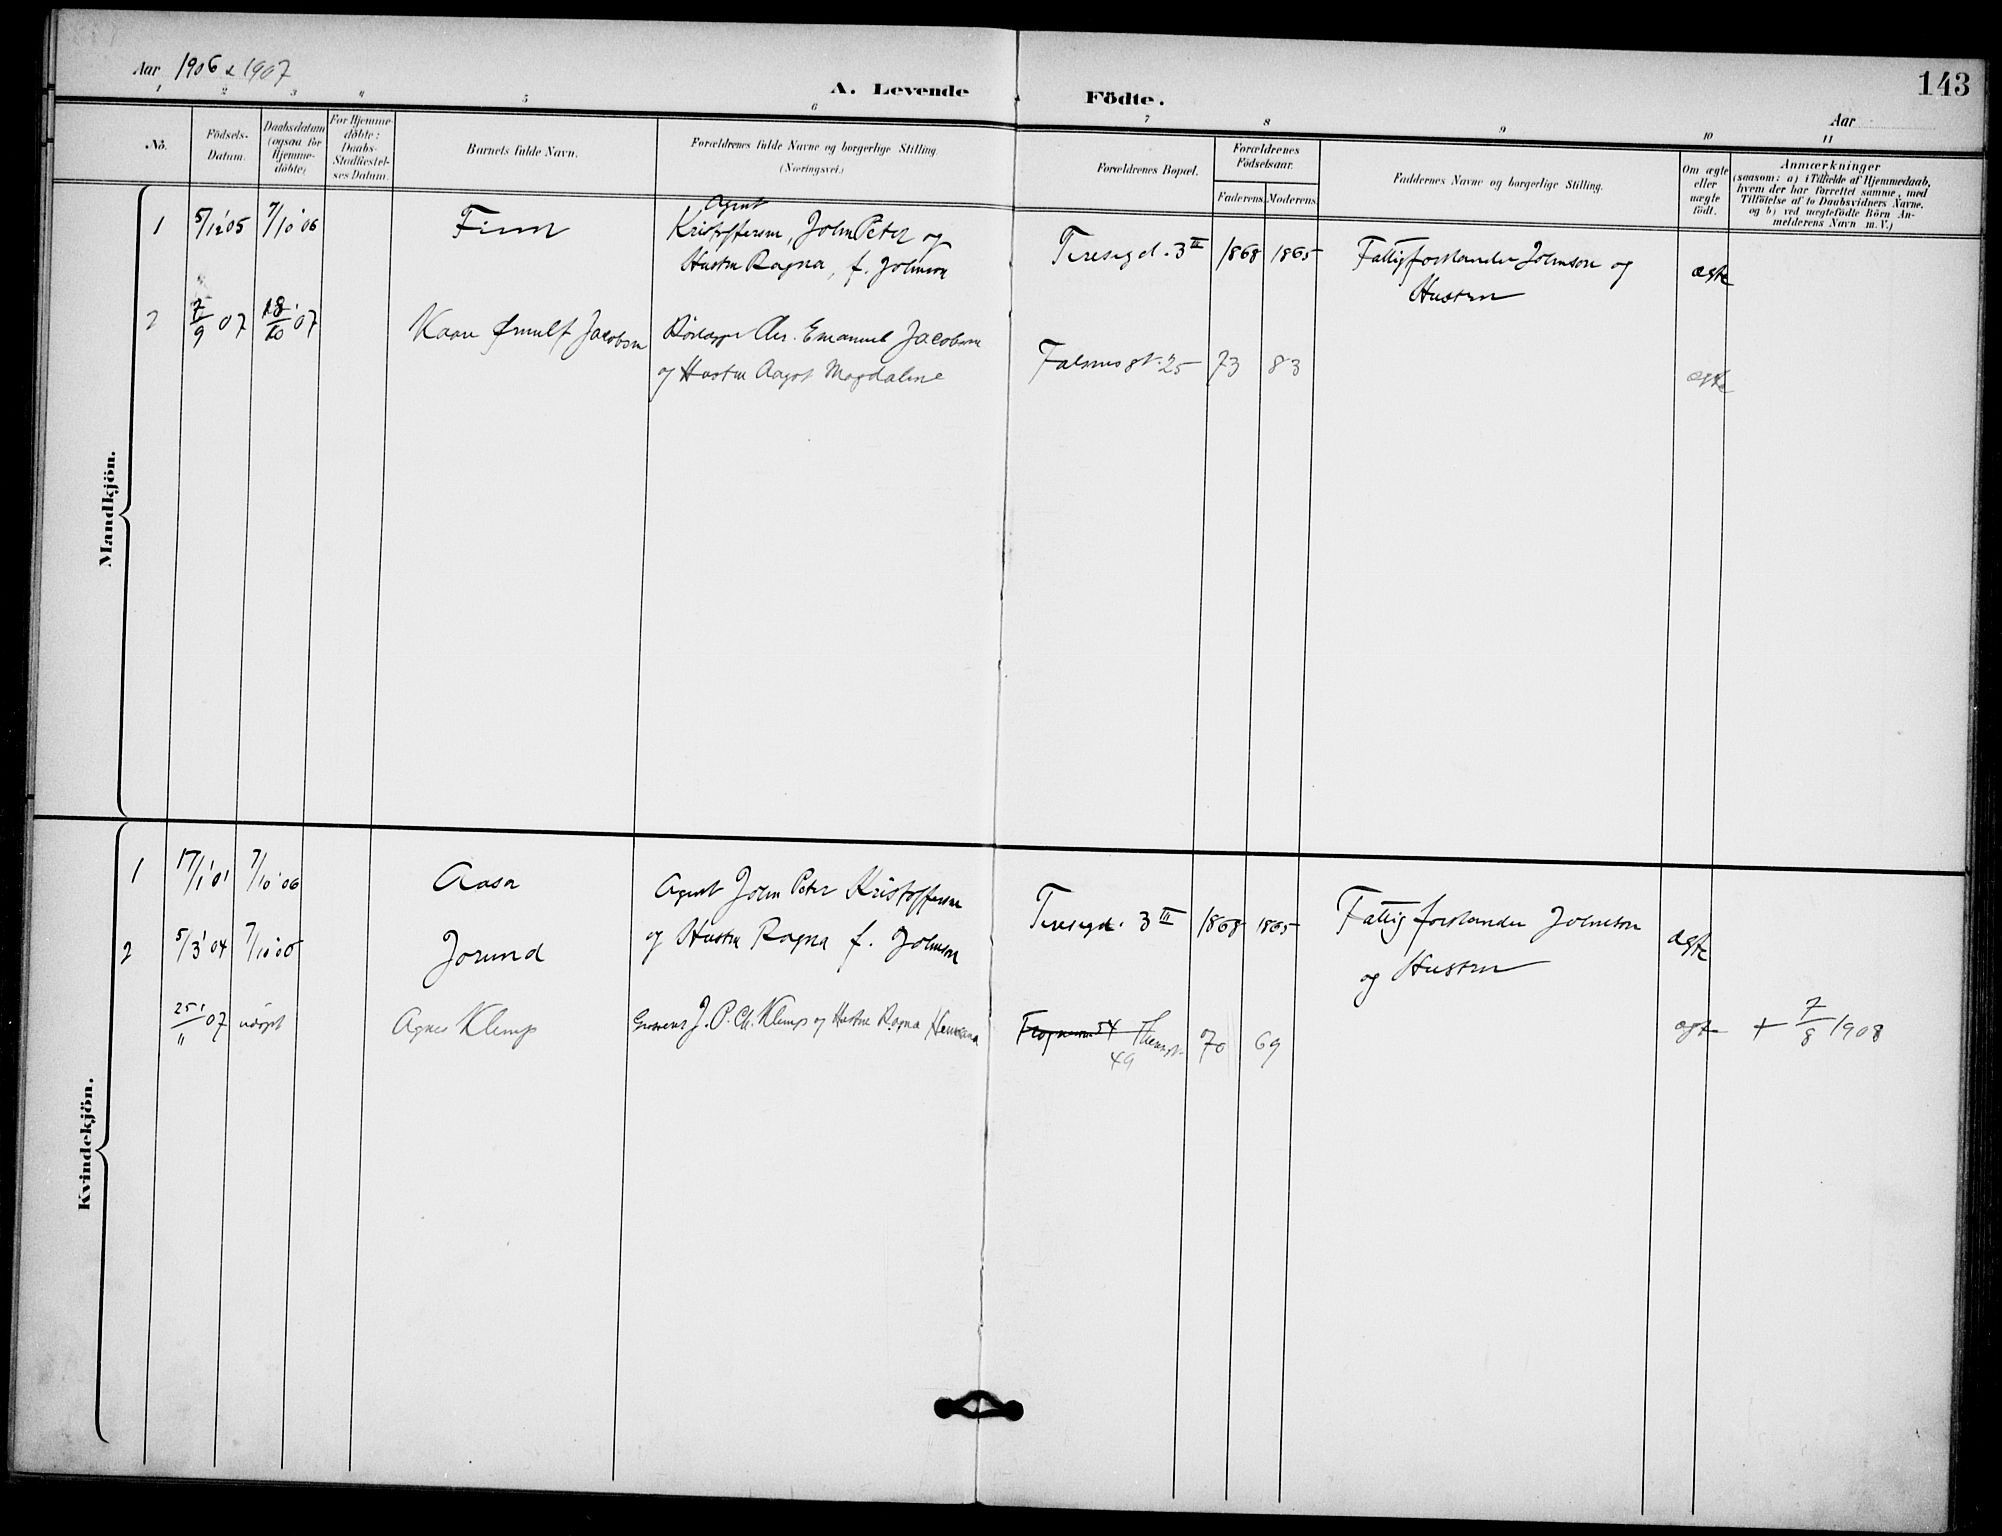 Aar 1906 & 1907
A. Levende Födte.
143
Aar
1 2 3 4 5 6 7 8 9 10 11
No.
Födsels-
Datum.
Daabsdatum
(ogsaa for
Hjemme-
döbte)
For Hjemme-
döbte:
Daabs-
Stadfæstel-
ses Datum.
Barnets fulde Navn.
Forældrenes fulde Navne og borgerlige Stilling
(Næringsvei.)
Forældrenes Bopæl.
Forældrenes
Födselsaar.
Faderens. Moderens.
Faddernes Navne og borgerlige Stilling.
Om ægte
eller
uægte
födt.
Anmærkninger
(saasom: a) i Tilfælde af Hjemmedaab,
hvem der har forrettet samme, med
Tilföielse af to Daabsvidners Navne.
og b) ved uægtefödte Börn An-
melderens Navn m. V.)
Mandkjön.
1 5/12 05 7/10 '06 Finn
Agent
Kristoffersen, John Peter og
Hustru Ragna, f. Johnson
Teresegd. 3 III 1868 1865
Fattigforstander Johnson og
Hustru
ægte
2 7/9 07 18/10 '07 Kaare Ørnulf Jacobsen
Chr. Emanuel Jacobsen
og Hustru Aagot Magdaline
25 73 83
ægte
Kvindekjön.
1 17/1 '01 7/10 '06 Aasa
Agent John Peter Kristoffersen
og Hustru Ragna f. Johnson
Teresegd. 3 III 1868 1865
Fattigforstander Johnson
og Hustru
ægte
2 5/3 '04 7/10 '06 Jorund
25/11 07 udøpt Agnes Klemp
J. P. Ch. Klemp og Hustru Ragna
54
49
70 69
ægte
+ 7/8 1908